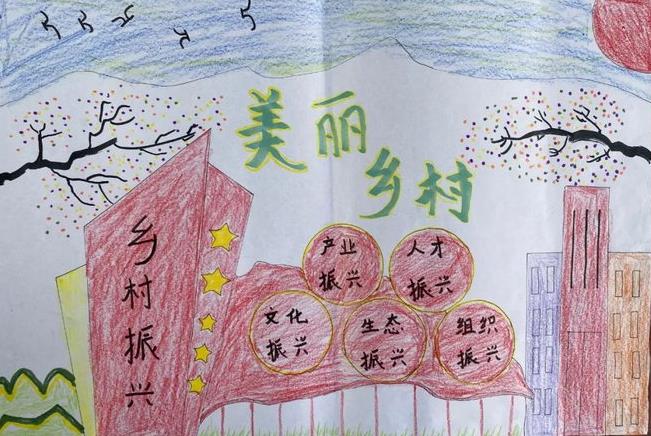 美丽
乡村
乡村振兴
产业
振兴
人才
振兴
文化
振兴
生态
振兴
组织
振兴